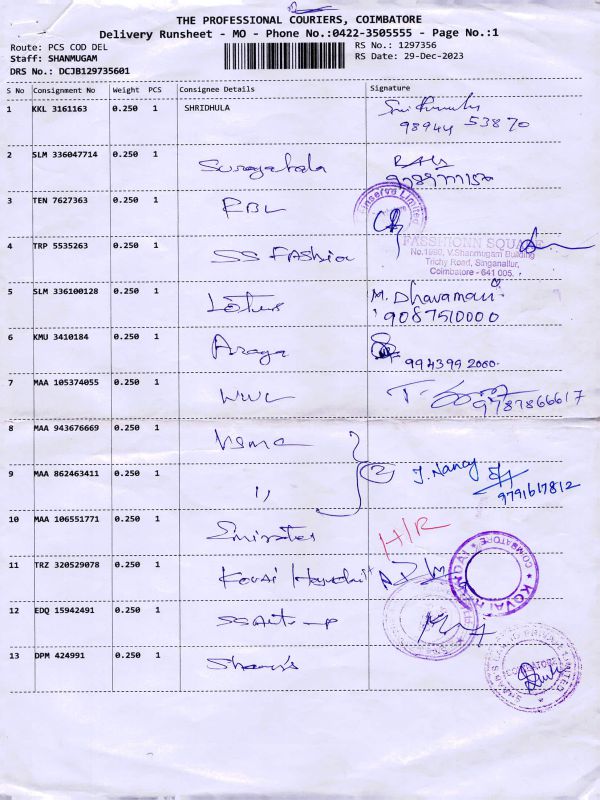 THE PROFESSIONAL COURIERS, COIMBATORE
Delivery Runsheet - MO - Phone No.:0422-3505555 - Page No.:1
Route: PCS COD DEL RS No.: 1297356
Staff: SHANMUGAM RS Date: 29-Dec-2023
DRS No.: DCJB129735601
S No Consignment No Weight PCS Consignee Details Signature
1 KKL 3161163 0.250 1 SHRIDHULA
98944 53870
2 SLM 336047714 0.250 1
3 TEN 7627363 0.250 1 RBL
4 TRP 5535263 0.250 1 SS FASHion
FASSHIONN SQUARE
No.1990, V.Shanmugam Building
Trichy Road, Singanallur,
Coimbatore - 641 005.
5 SLM 336100128 0.250 1 Lotus M. Dhavamani
9087510000
6 KMU 3410184 0.250 1
9943992060
7 MAA 105374055 0.250 1 WWC
9787866617
8 MAA 943676669 0.250 1
9 MAA 862463411 0.250 1 " 2 J. Nancy
9791617812
10 MAA 106551771 0.250 1 Emirates H/R
11 TRZ 320529078 0.250 1 Kovai
COIMBATORE KOVAI
12 EDQ 15942491 0.250 1
13 DPM 424991 0.250 1